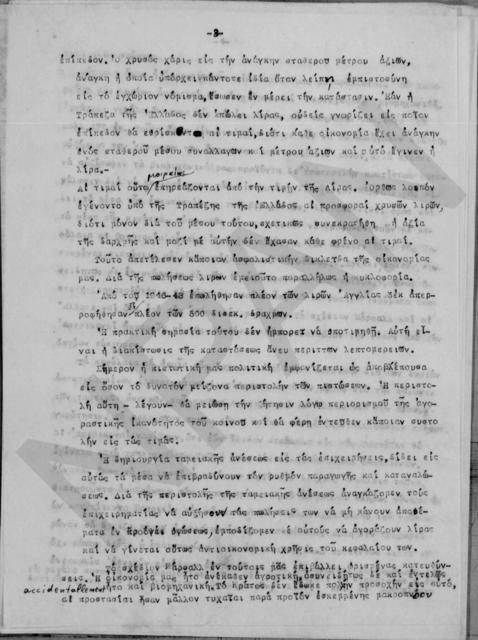 -3-
ἐπίπεδον. Ὁ χρυσός χάρις εἰς τήν ἀνάγκην σταθεροῦ μέτρου ἀξιῶν,
ἀνάγκη ἡ ὁποία ὑπάρχει κάντοτε ἰδία ὅταν λείπῃ ἐμπιστοσύνη
εἰς τό ἐγχώριον νόμισμα, ἔσωσεν ἐν μέρει τήν κατάστασιν. Ἐάν ἡ
Τράπεζα τῆς Ἑλλάδος δέν ἐπώλει λίρας, οὐδείς γνωρίζει εἰς ποῖον
ἐπίπεδον θά εὑρίσκοντο αἱ τιμαί, διότι κάθε οἰκονομία ἔχει ἀνάγκην
ἑνός σταθεροῦ μέσου συναλλαγῶν καί μέτρου ἀξιῶν καί αὐτό ἔγινεν ἡ
λίρα.-
μοιραίως
Αἱ τιμαί οὕτω ἐπηρεάζονται ἀπό τήν τιμήν τῆς λίρας. Ὀρθῶς λοιπόν
ἐγένοντο ὑπό τῆς Τραπέζης τῆς Ἑλλάδος αἱ προσφοραί χρυσῶν λιρῶν,
διότι μόνον διά τοῦ μέσου τούτου, σχετικῶς συνεκρατήθη ἡ ἀξία
τῆς δαρχμῆς καί μαζί μέ αὐτήν δέν ἔχασαν κάθε φρένο αἱ τιμαί.
Τοῦτο ἀπετέλεσεν κάποιαν ἀσφαλιστικήν δικλεῖδα τῆς οἰκονομίας
μας. Διά τῆς πωλήσεως λιρῶν ἐμειοῦτο παραλλήλως ἡ κυκλοφορία.
Ἀπό τοῦ 1946-48 ἐπωλήθησαν πλέον τῶν λιρῶν Ἀγγλίας δέκ ἀπερ-
ροφήθησαν πλέον τῶν 500 δισεκ. δραχμῶν.
Ἡ πρακτική σημασία τούτου δέν ἠμπορεῖ νά ὑποτιμηθῇ. Αὐτή εἶ-
ναι ἡ διακίστωσις τῆς καταστάσεως ἄνευ περιττῶν λεπτομερειῶν.
Σήμερον ἡ πιστωτική μας πολιτική ἐμφανίζεται ὡς ἀποβλέπουσα
εἰς ὅσον τό δυνατόν μείζονα περιστολήν τῶν πιστώσεων. Ἡ περιστολή
αὕτη - λέγουν - θά μειώσῃ τήν ζήτησιν λόγῳ περιορισμοῦ τῆς ἀγο-
ραστικῆς ἱκανότητος τοῦ κοινοῦ καί θά φέρῃ ἐντεῦθεν κάποιαν συστο
λήν εἰς τάς τιμάς.
Ἡ δημιουργία ταμειακῆς ἀνέσεως εἰς τάς ἐπιχειρήσεις, δίδει εἰς
αὐτάς τά μέσα νά ἐπιβραδύνουν τόν ρυθμόν παραγωγῆς καί καταναλώ-
σεως. Διά τῆς περιστολῆς τῆς ταμειακῆς ἀνέσεως ἀναγκάζομεν τούς
ἐπιχειρηματίας νά αὐξήσουν τάς πωλήσεις των νά μή κάνουν ἀποθέ-
ματα ἐν προόψει ὑψώσεως, ἐμποδίζομεν δέ αὐτούς νά ἀγοράζουν λίρας
καί νά γίνεται οὕτως ἀντιοικονομική χρῆσις τοῦ κεφαλαίου των.
Τό σχέδιον Μάρσαλλ ἐν τούτοις μᾶς ἐπιβάλλει ὡρισμένας κατευθύν-
σεις. Ἡ οἰκονομία μας ἦτο ἀνέκαθεν ἀγροτική, ἀσυνειδήτως δέ καί ἐντελῶς
accidentallement ἦτο καί βιομηχανική. Τό Κράτος δέν ἔδωκε πολλήν προσοχήν εἰς αὐτό,
αἱ προστασίαι ἦσαν μᾶλλον τυχαῖαι παρά προϊόν ἐσκεμμένης μακροπνόου